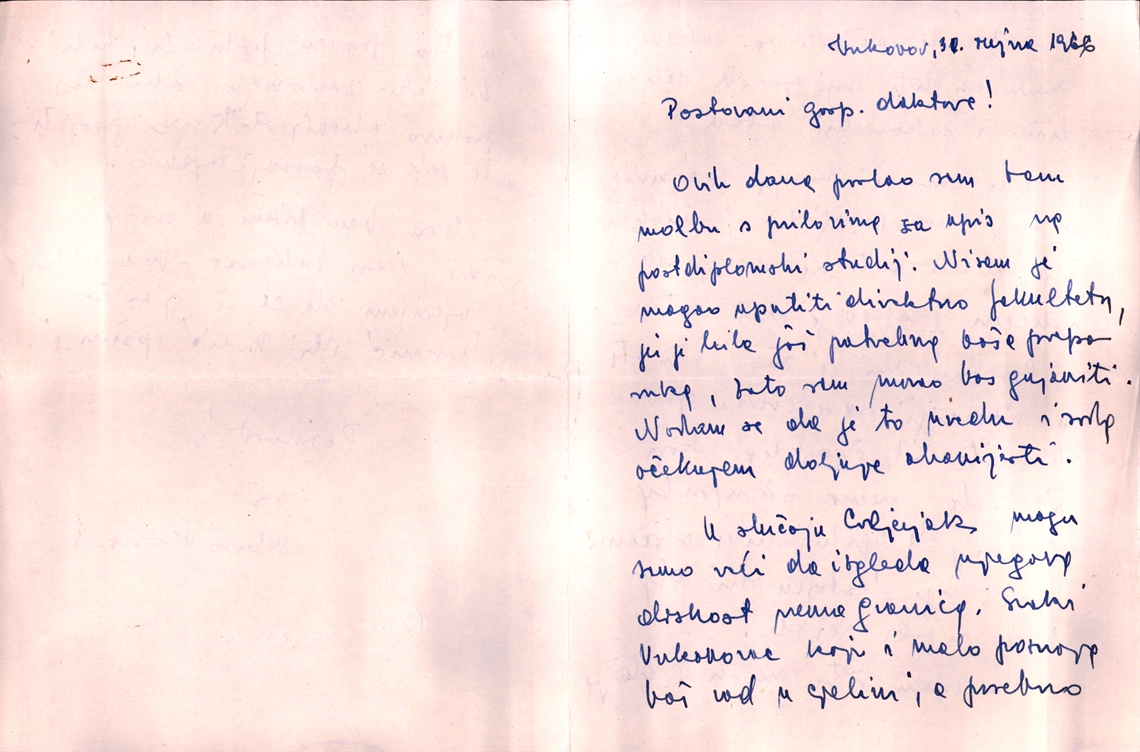 Vukovar, 30. rujna 1966
Postovani gosp. doktore!
Ovih dana poslao sam Vam
molbu s prilozima za upis na
postdiplomski studij. Nisam je
mogao uputiti direktno fakultetu,
jer je bila još potrebna vaša prepo
ruka, zato sam morao vas gnjaviti.
Nadam se da je to uredu i sada
očekujem daljnje obavijesti.
U slučaju Cvljenjak mogu
samo reći da izgleda njegova
drskost nema granica. Svaki
Vukovarac koji i malo poznaje
Vaš rad u cjelini, a posebno